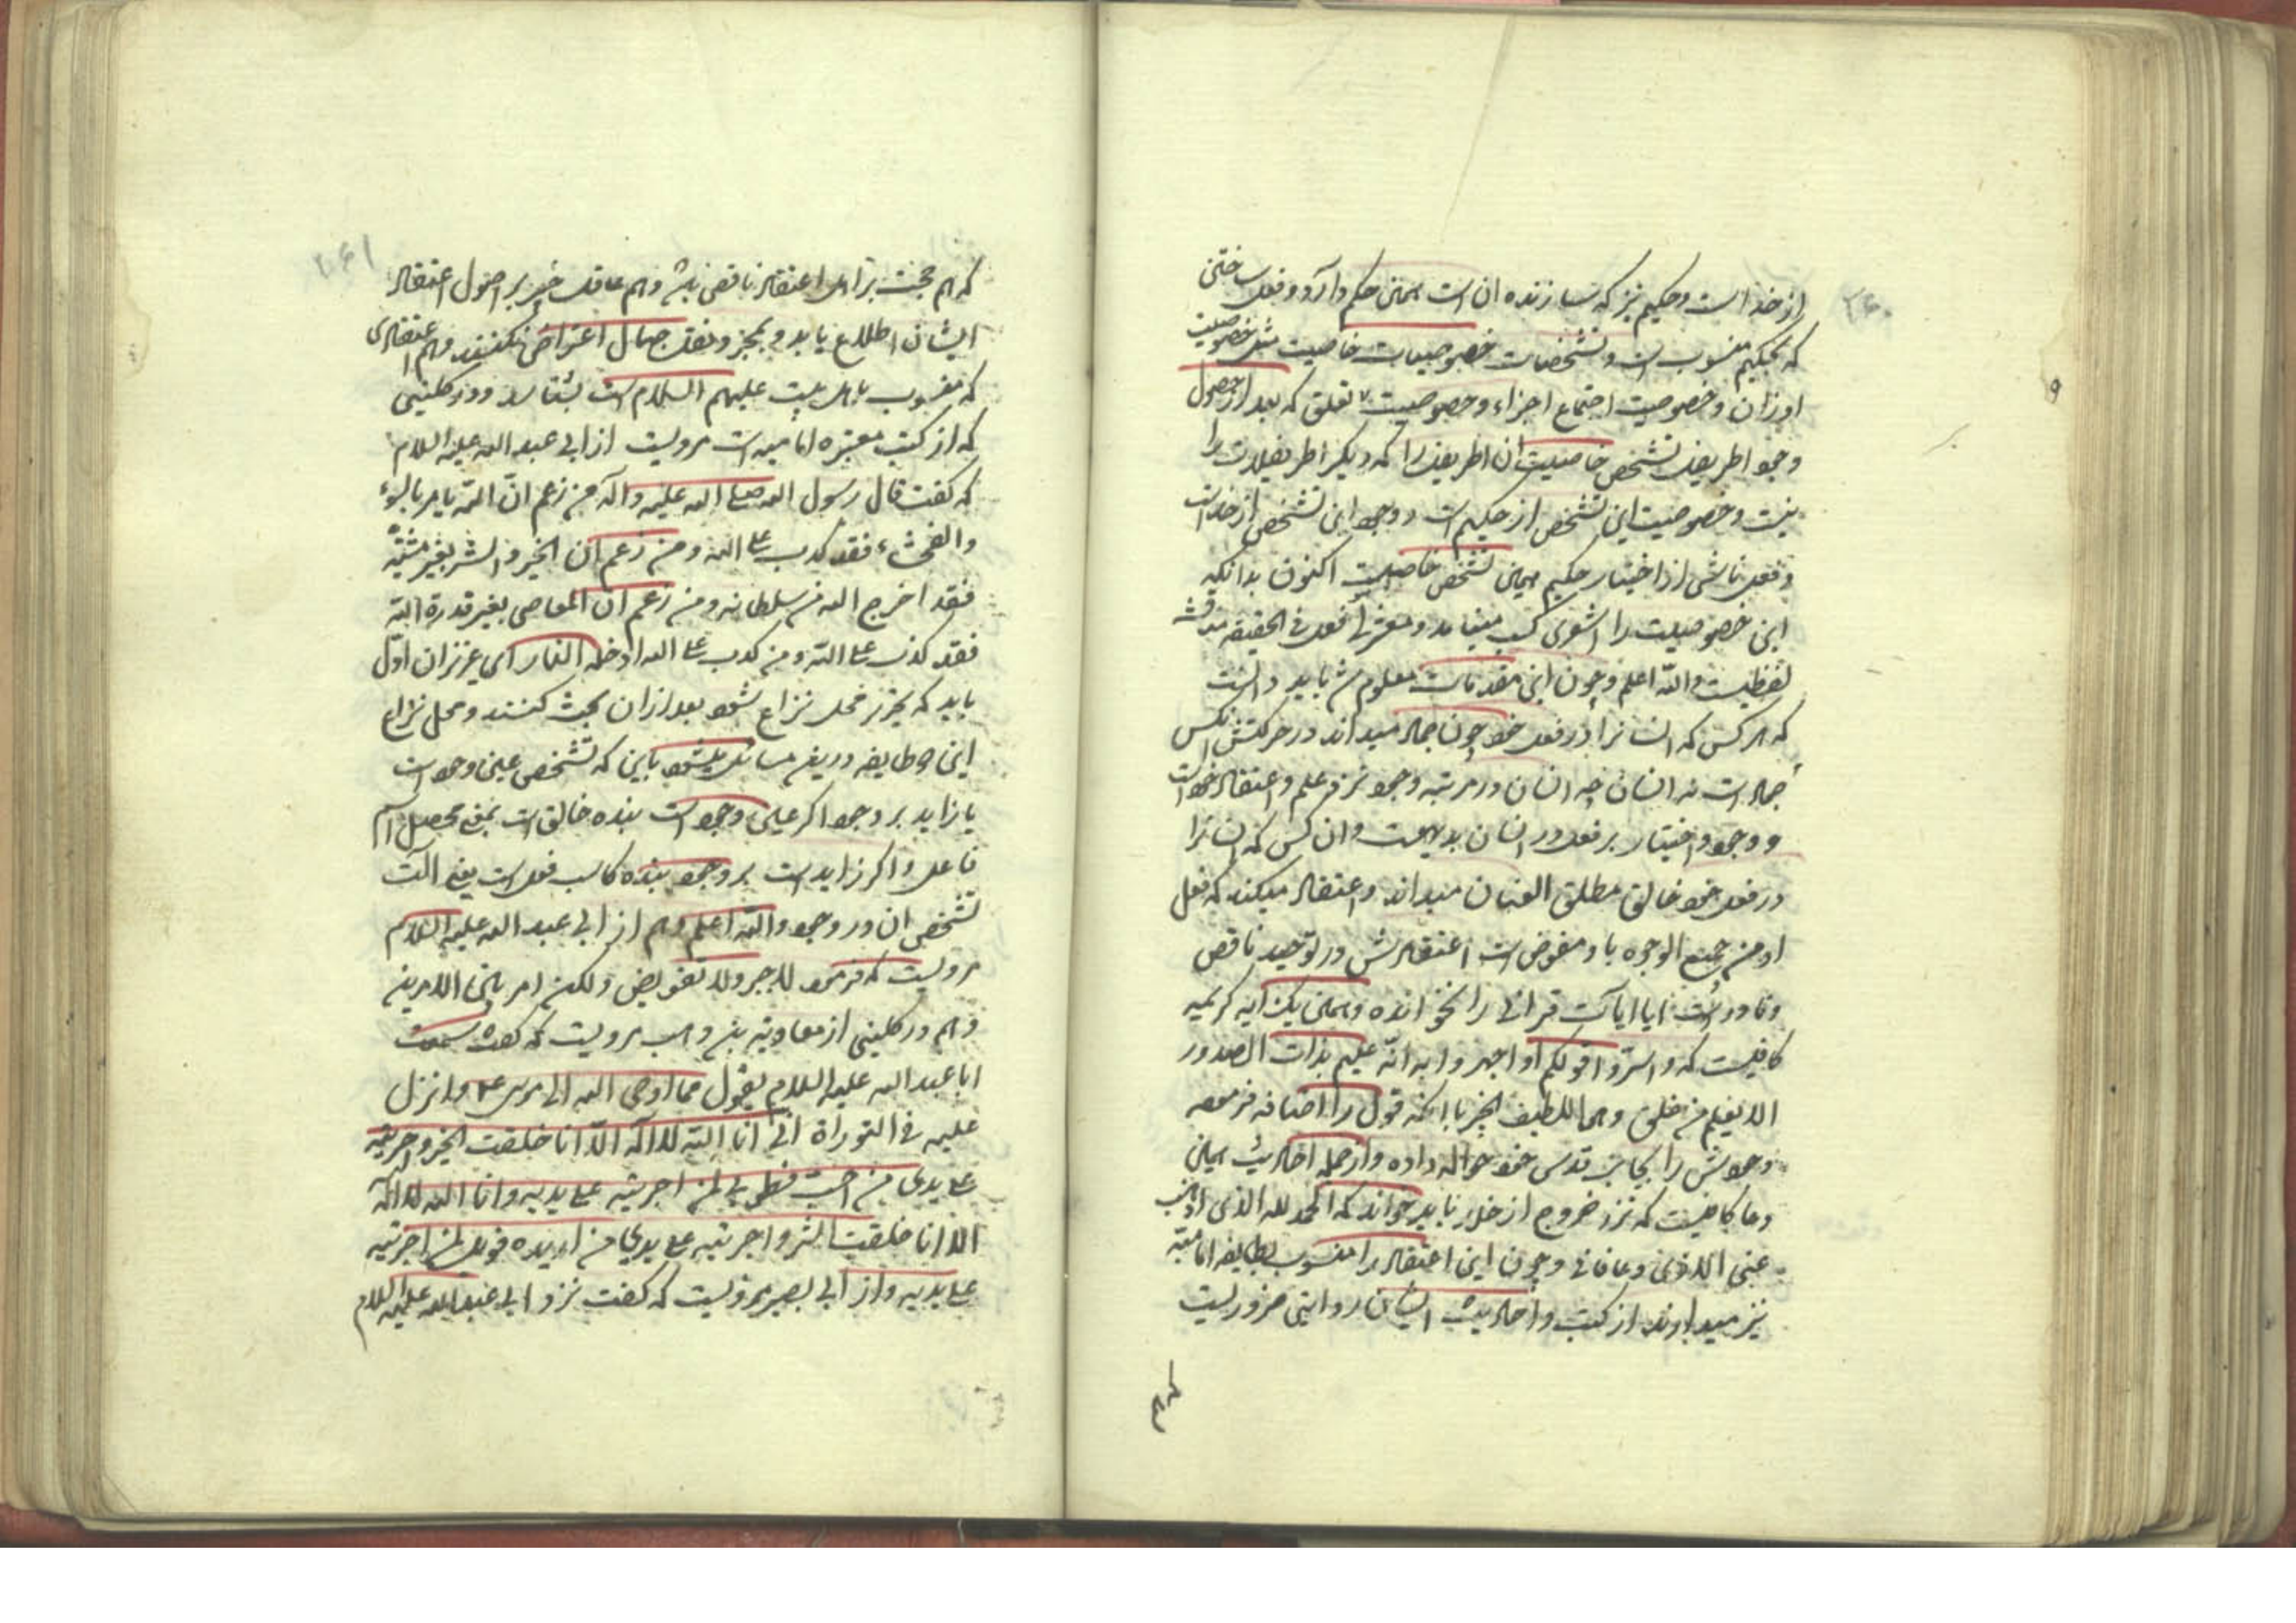 ۲۶۰
از خداست و حکیم نیز که سازنده ان است همین حکم دارد و فعل ساختن
که بحکیم منسوب است و تشخصات خصوصیات خاصیت مثل خصوصیت
اوزان و خصوصیت اجتماع اجزاء و خصوصیت تعلق که بعد از حصول
وجود اطریفل تشخص خاصیت ان اطریفل را که دیگر اطریفلات را
نیست و خصوصیت این تشخص از حکیم است و وجود این تشخص از خداست
و فعل ناشی از اختیار حکیم همین تشخص خاصیت اکنون بدانکه
این خصوصیت را اشعری کسب مینامد و معتزلی فعل فی الحقیقه مناقشه
لفظیست والله اعلم و چون این مقدمات معلوم شد باید دانست
که هر کس که انسانرا در فعل خود چون جماد میداند در حرکتش انکس
جماد است نه انسان چه انسان در مرتبه وجود نوع علم و اعتقاد خود است
و وجود اختیار بر فعل در انسان بدیهست و ان کس که انسانرا
در فعل خود خالق مطلق العنان میداند و اعتقاد میکند که فعل
او من جمیع الوجوه باو مفوض است اعتقادش در توحید ناقص
و نادرست ایا ایات قرانی را نخوانده و همین یک ایه کریمه
کافیست که و اسروا قولکم او اجهروا به انه علیم بذات الصدور
الا یعلم من خلق وهو اللطیف الخبیر با انکه قول را اضافه فرموده
وجودش را بجانب قدس خود حواله داده و از جمله احادیث همین
دعا کافیست که نزد خروج از خلا باید خواند که الحمد لله الذی اذهب
عنی الاذی و عافانی و چون این اعتقاد را منسوب بطایفه امامیه
نیز میدارند از کتب و احادیث ایشان روایتی ضروریست
که هم
۲۶۱
که هم حجت بر اهل اعتقاد ناقص باشد و هم عاقل خبیر بر اصول اعتقاد
ایشان اطلاع یابد و بمجرد نقل جهال اعتراض نکنند و هم اعتقادی
که منسوب باهل بیت علیهم السلام است بشناسد و در کلینی
که از کتب معتبره امامیه است مرویست از ابی عبد الله علیه السلام
که گفت قال رسول الله صلی الله علیه وآله من زعم ان الله یامر بالسوء
والفحشاء فقد کذب علی الله ومن زعم ان الخیر والشر بغیر مشیة
فقد اخرج الله من سلطانه ومن زعم ان المعاصی بغیر قدرة الله
فقد کذب علی الله ومن کذب علی الله ادخله النار ای عزیزان اول
باید که تحریر محل نزاع شود بعد از ان بحث کنند و محل نزاع
این دو طایفه درین مسائل میشود باین که تشخص عین وجود است
یا زاید بر وجود اگر عین وجود است بنده خالق است بمعنی محصل اسم
فاعل و اگر زاید است بر وجود بنده کاسب فعل است یعنی الت
تشخص ان در وجود والله اعلم و هم از ابی عبد الله علیه السلام
مرویست که فرمود لا جبر ولا تفویض ولکن امر بین الامرین
و هم در کلینی از معاویة بن وهب مرویست که گفت سمعت
ابا عبد الله علیه السلام یقول مما اوحی الله الی موسی ع م وانزل
علیه فی التوراة انی انا الله لا اله الا انا خلقت الخیر واجریته
علی یدی من احب فطوبی لمن اجریته علی یدیه وانا الله لا اله
الا انا خلقت الشر واجریته علی یدی من اریده فویل لمن اجریته
علی یدیه و از ابی بصیر مرویست که گفت نزد ابی عبد الله علیه السلام